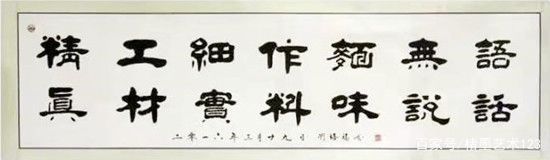 精工細作麵無語
眞材實料味說話
二零一六年三月廿九日
百家号/艺术123